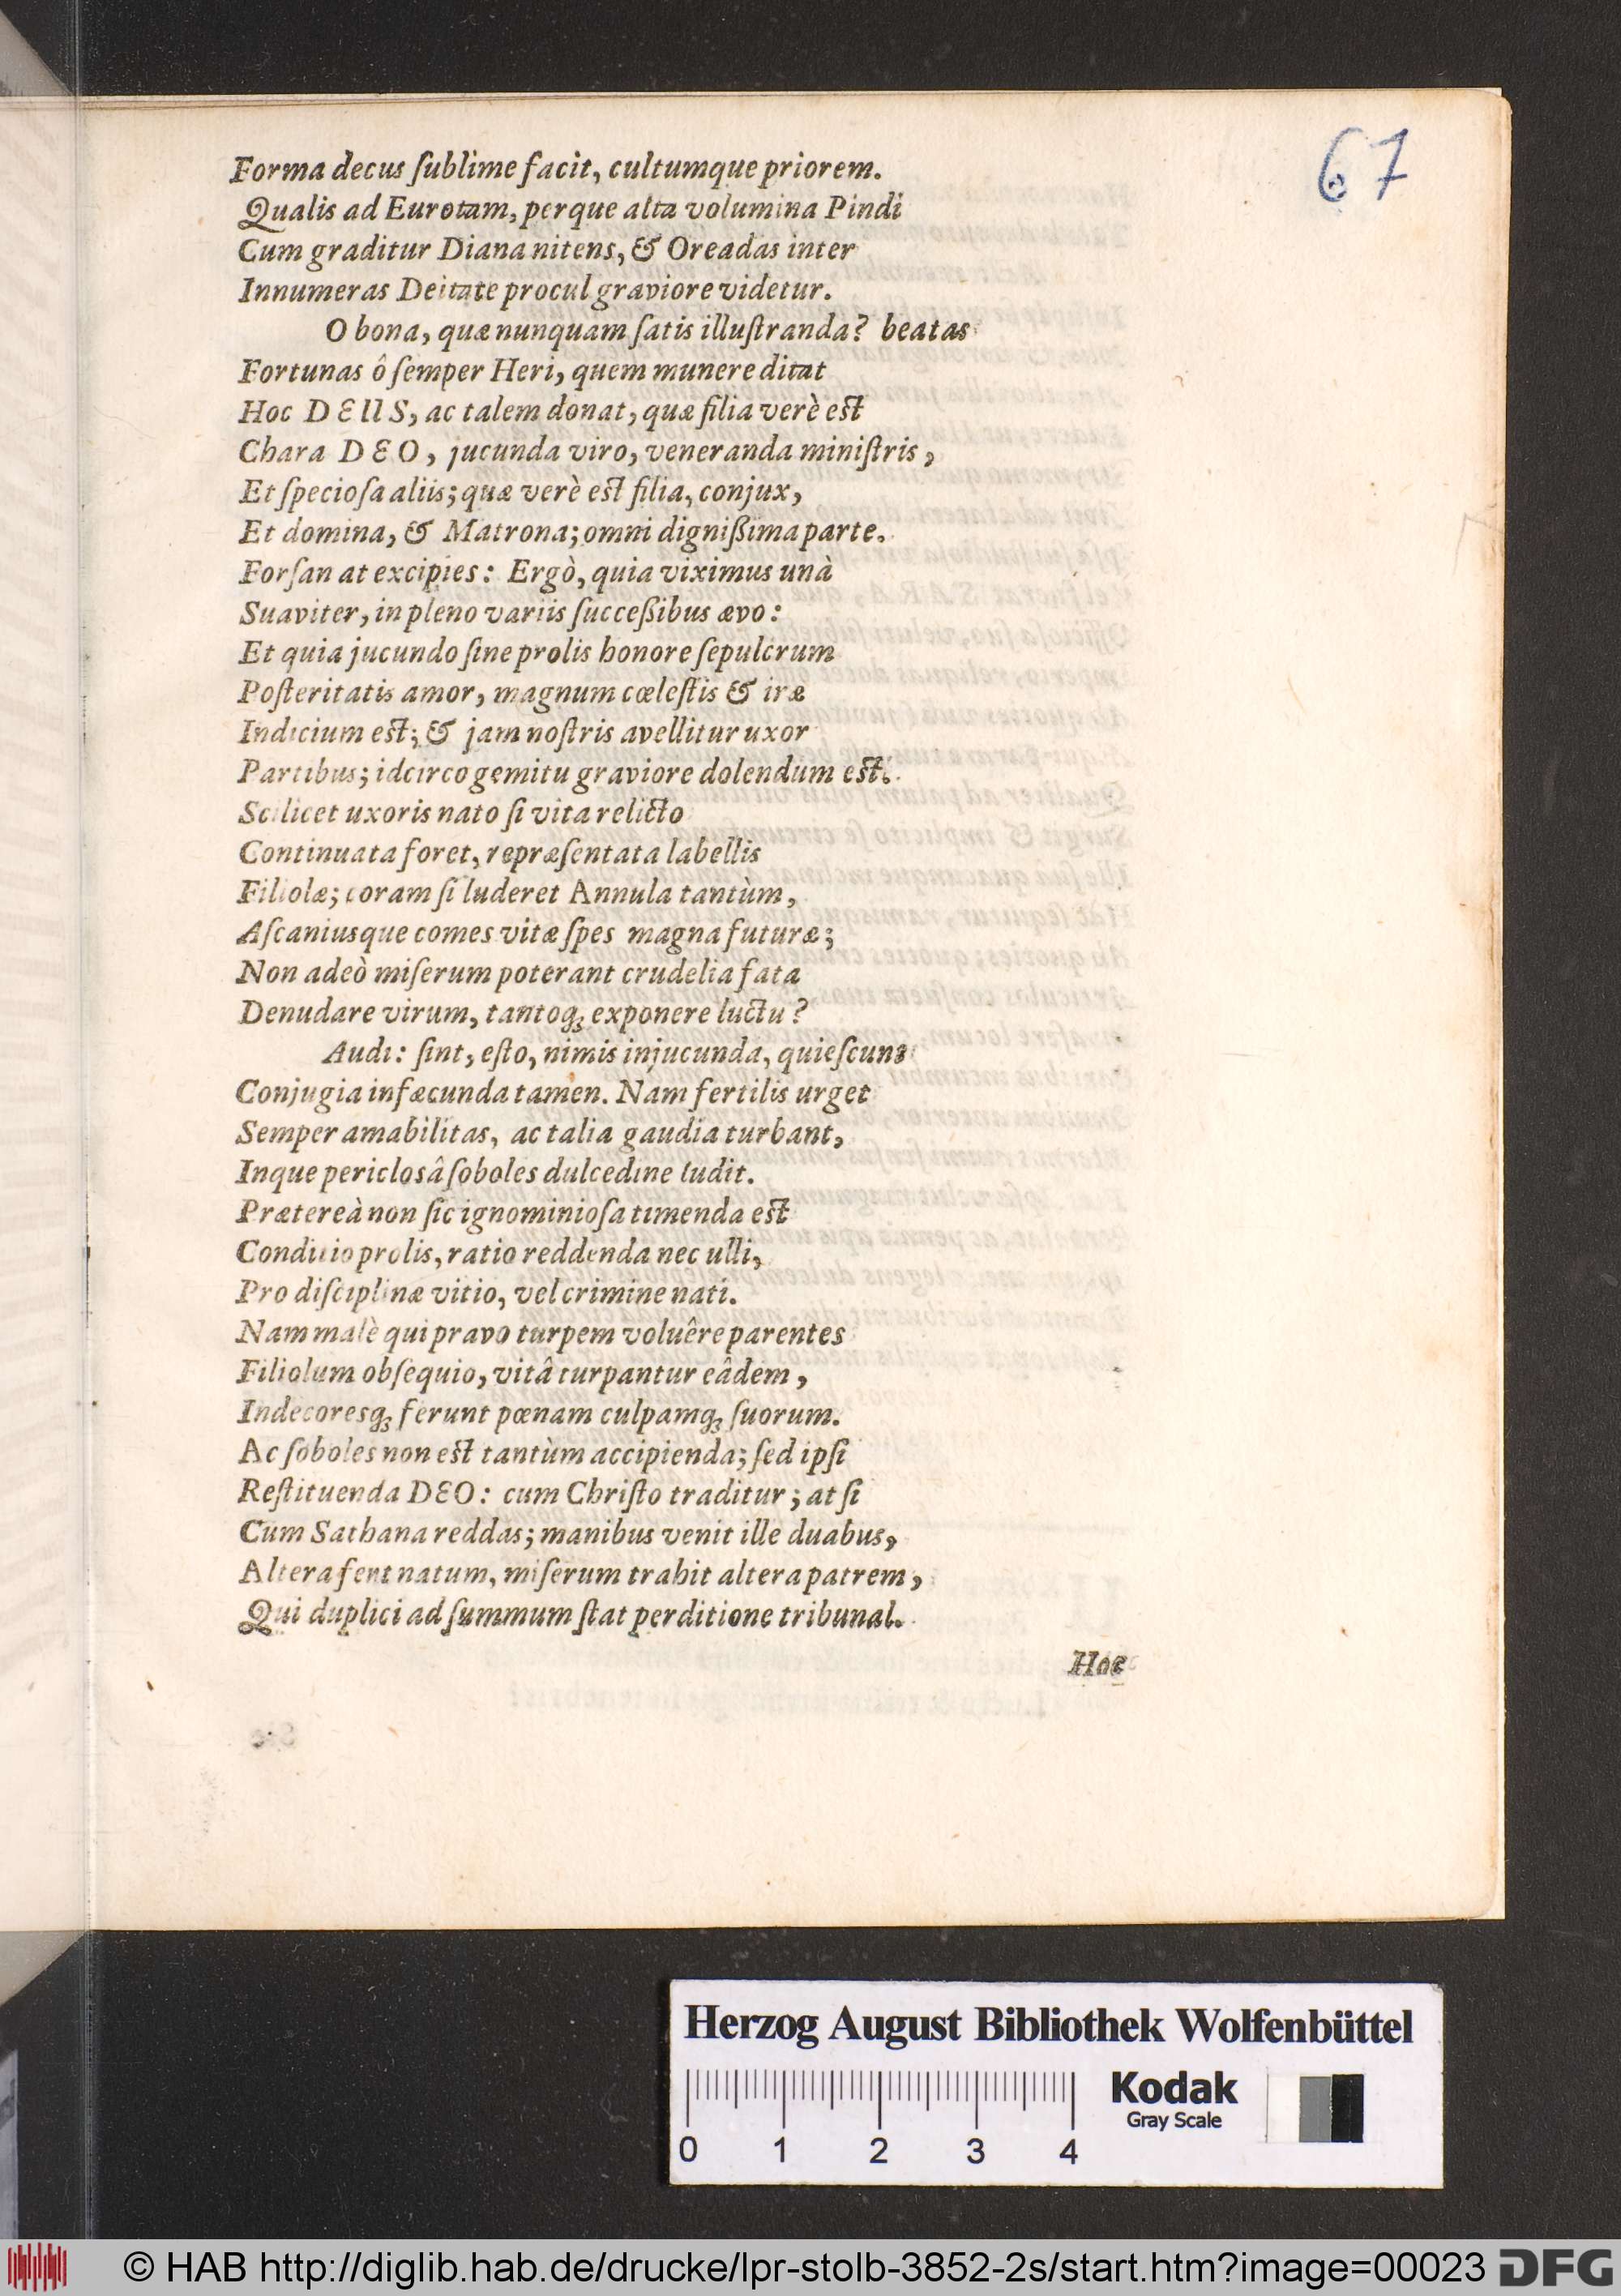 67
Forma decus ſublime facit, cultumque priorem.
Qualis ad Eurotam, perque alta volumina Pindi
Cum graditur Diana nitens, & Oreadas inter
Innumeras Deitate procul graviore videtur.
O bona, quæ nunquam ſatis illuſtranda? beatas
Fortunas ô ſemper Heri, quem munere ditat
Hoc DEUS, ac talem donat, quæ filia verè eſt
Chara DEO, jucunda viro, veneranda miniſtris,
Et ſpecioſa aliis; quæ verè eſt filia, conjux,
Et domina, & Matrona; omni digniſſima parte.
Forſan at excipies: Ergò, quia viximus unà
Suaviter, in pleno variis ſucceſſibus ævo:
Et quia jucundo ſine prolis honore ſepulcrum
Poſteritatis amor, magnum cœleſtis & iræ
Indicium eſt; & jam noſtris avellitur uxor
Partibus; idcirco gemitu graviore dolendum eſt.
Scilicet uxoris nato ſi vita relicto
Continuata foret, repræſentata labellis
Filiolæ; coram ſi luderet Annula tantùm,
Aſcaniusque comes vitæ ſpes magna futuræ;
Non adeò miſerum poterant crudelia fata
Denudare virum, tantoq; exponere luctu?
Audi: ſint, eſto, nimis injucunda, quieſcunt
Conjugia infæcunda tamen. Nam fertilis urget
Semper amabilitas, ac talia gaudia turbant,
Inque periclosâ ſoboles dulcedine ludit.
Prætereà non ſic ignominioſa timenda eſt
Conditio prolis, ratio reddenda nec ulli,
Pro diſciplinæ vitio, vel crimine nati.
Nam malè qui pravo turpem voluêre parentes
Filiolum obſequio, vitâ turpantur eâdem,
Indecoresq; ferunt pœnam culpamq; ſuorum.
Ac ſoboles non eſt tantùm accipienda; ſed ipſi
Reſtituenda DEO: cum Chriſto traditur; at ſi
Cum Sathana reddas; manibus venit ille duabus,
Altera fert natum, miſerum trahit altera patrem,
Qui duplici ad ſummum ſtat perditione tribunal.
Hoc
Herzog August Bibliothek Wolfenbüttel
Kodak
Gray Scale
0 1 2 3 4
© HAB http://diglib.hab.de/drucke/lpr-stolb-3852-2s/start.htm?image=00023 DFG